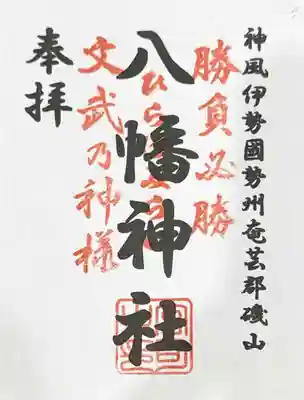 神風伊勢國勢州奄芸郡磯山
勝負必勝
八幡神社
文武乃神様
奉拝